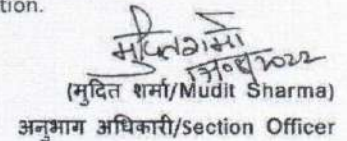 tion.
मुदित शर्मा
(मुदित शर्मा/Mudit Sharma)
अनुभाग अधिकारी/Section Officer